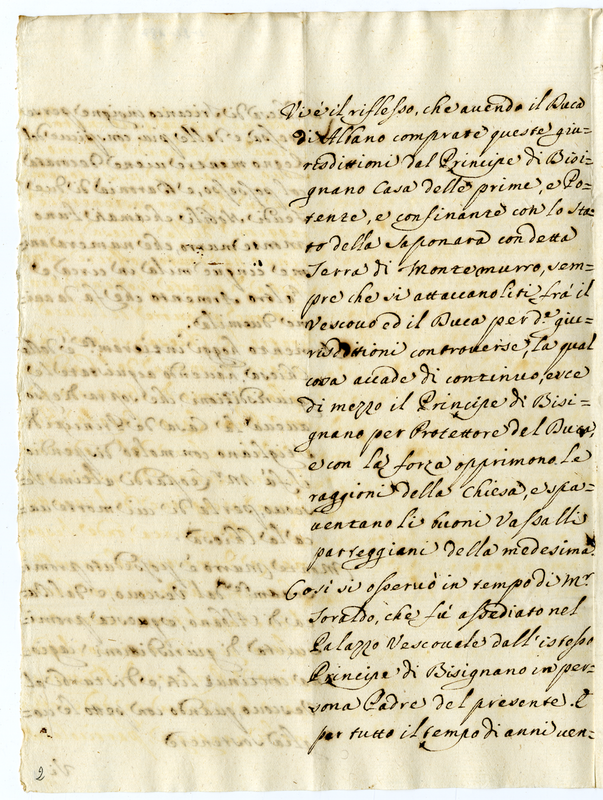 Vi é il riflesso, che auendo il Duca
di Albano comprate queste giu=
risdittioni dal Principe di Bisi=
gnano Casa delle prime, e Po=
tenze, e confinante con lo Sta=
to della Saponara con detta
Terra di Montemurro, sem=
pre che si attaccano liti frá il
Vescouo ed il Duca per d.e giu=
risdittioni controuerse, la qual
cosa accade di continuo, esce
di mezzo il Principe di Bisi=
gnano per Protettore del Duca,
e con la forza opprimono le
raggioni della Chiesa, e spa=
uentano li buoni Vassalli
parteggiani della medesima.
Cosi si osseruò in tempo di Mr
Toraldo, che fú assediato nel
Palazzo Vescouale dall'istesso
Principe di Bisignano in per=
sona Padre del presente. E
per tutto il tempo di anni uen=
2